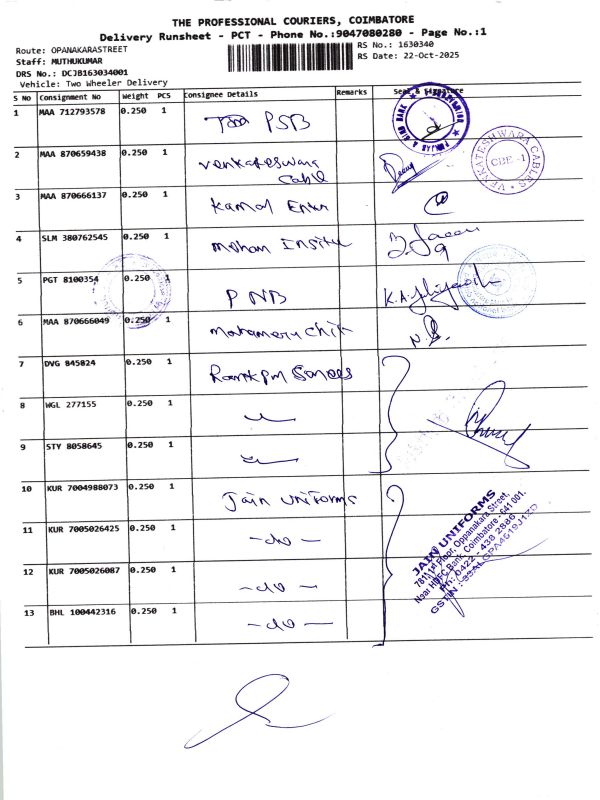 THE PROFESSIONAL COURIERS, COIMBATORE
Delivery Runsheet - PCT - Phone No.:9047080280 - Page No.:1
Route: OPANAKARASTREET
RS No.: 1630340
Staff: MUTHUKUMAR
RS Date: 22-Oct-2025
DRS No.: DCJB163034001
Vehicle: Two Wheeler Delivery
S No Consignment No Weight PCS Consignee Details Remarks Seal & Signature
1 MAA 712793578 0.250 1 PSB
2 MAA 870659438 0.250 1 Venkateswara
Cable
VENKATESHWARA CABLES
CBE-1
3 MAA 870666137 0.250 1 Kamal
4 SLM 380762545 0.250 1 Mohan
5 PGT 8100354 0.250 1 PNB
6 MAA 870666049 0.250 1
7 DVG 845824 0.250 1
8 WGL 277155 0.250 1
9 STY 8058645 0.250 1
10 KUR 7004988073 0.250 1 Jain Uniforms
11 KUR 7005026425 0.250 1 -do-
12 KUR 7005026087 0.250 1 -do-
13 BHL 100442316 0.250 1 -do-
JAIN UNIFORMS
1st Floor, Oppanakara Street,
Near HDFC Bank, Coimbatore - 641 001.
Ph: 0422 - 438 2886